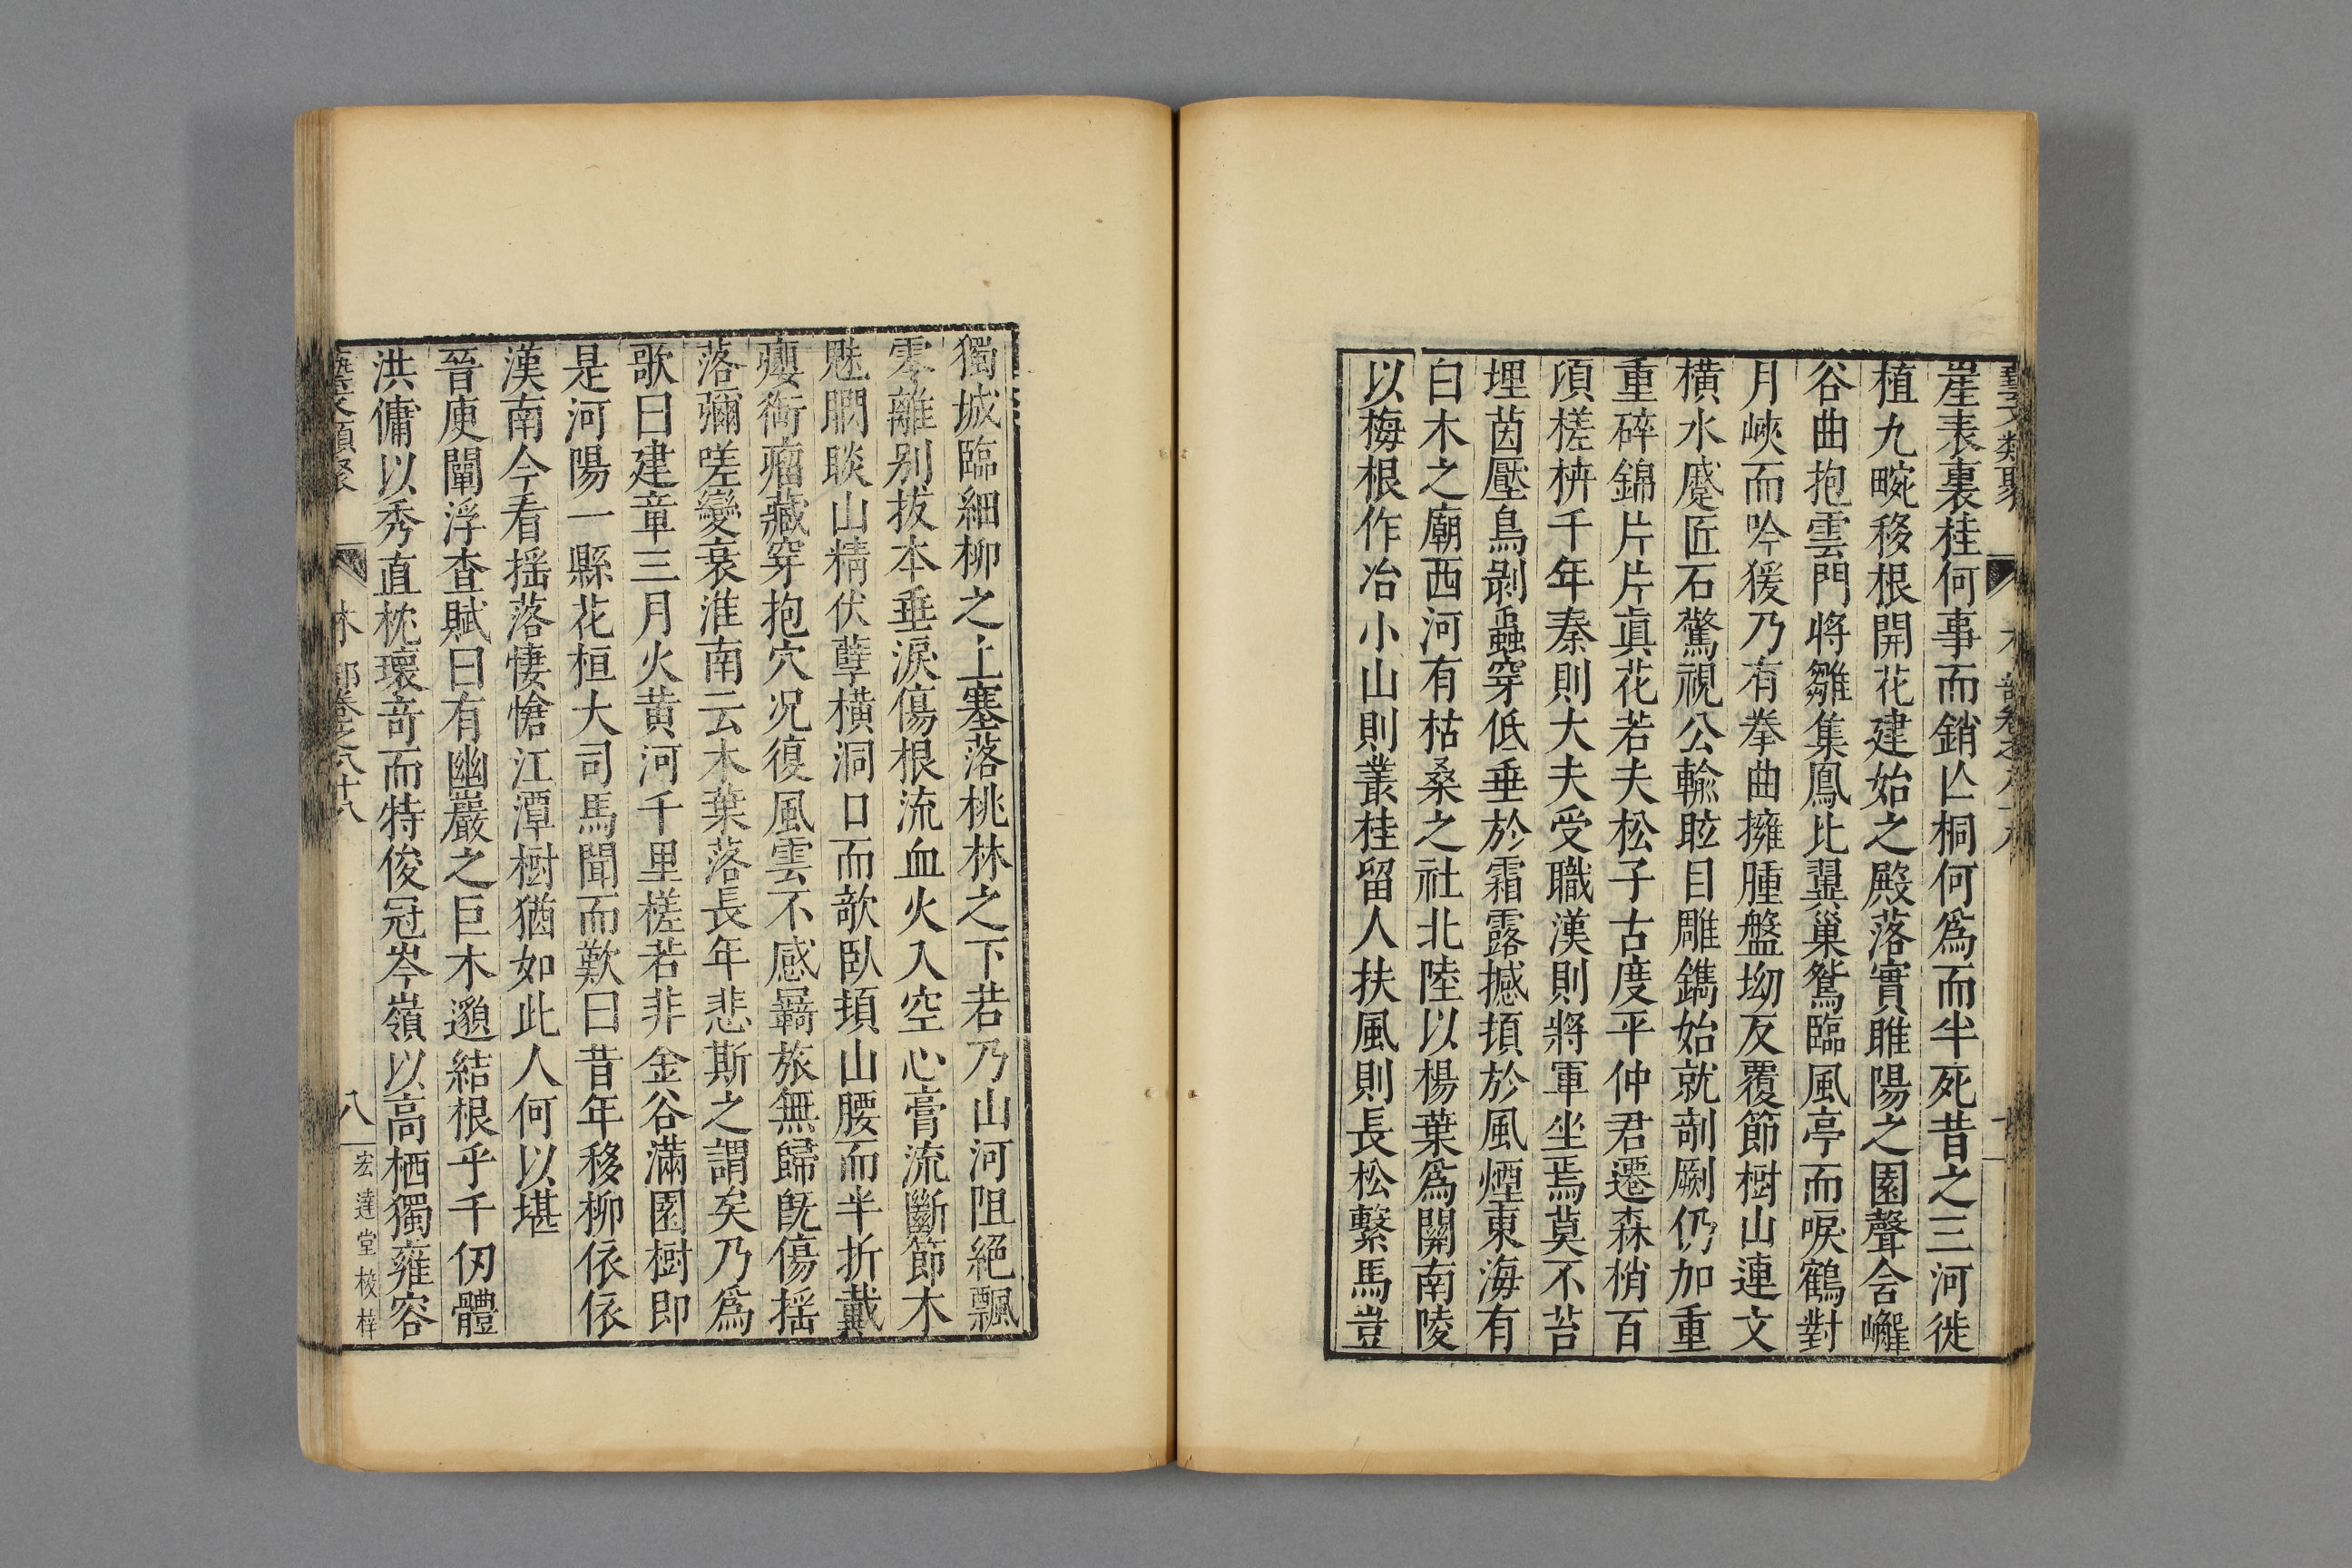 崖表裏桂何事而銷亾桐何爲而半死昔之三河徙
植九畹移根開花建始之殿落實睢陽之園聲含嶰
谷曲抱雲門將雛集鳳比翼巢鴛臨風亭而唳鶴對
月峽而吟猨乃有拳曲擁腫盤坳反覆節樹山連文
橫水蹙匠石驚視公輸眩目雕鐫始就剞劂仍加重
重碎錦片片眞花若夫松子古度平仲君遷森梢百
頃槎枿千年秦則大夫受職漢則將軍坐焉莫不苔
埋茵壓鳥剥蟲穿低垂於霜露撼頓於風煙東海有
白木之廟西河有枯桑之社北陸以楊葉爲關南陵
以梅根作冶小山則叢桂留人扶風則長松繫馬豈
獨城臨細柳之上塞落桃林之下若乃山河阻絕飄
零離别拔本垂淚傷根流血火入空心膏流斷節木
魅睒山精伏孽橫洞口而欹臥頓山腰而半折戴
癭銜瘤藏穿抱穴況復風雲不感羇旅無歸旣傷揺
落彌嗟變衰淮南云木葉落長年悲斯之謂矣乃爲
歌曰建章三月火黃河千里槎若非金谷滿園樹即
是河陽一縣花桓大司馬聞而歎曰昔年移柳依依
漢南今看揺落悽愴江潭樹猶如此人何以堪
晉庾闡浮査賦曰有幽巖之巨木邈結根乎千仞體
洪傭以秀直枕瓌竒而特俊冠岑嶺以高栖獨雍容
八
宏達堂校梓